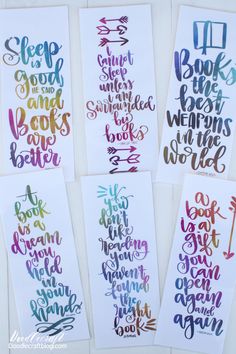 Sleep is
good
HE SAID
and
Books
are
better
I
cannot
sleep
unless
I am
surrounded
by
books
Books
the
best
weapons
in the
world
A
book
is a
dream
you
hold
in your
hand
if
you
don't
like
reading
you
haven't
found
the right
book
a
book
is a
gift
you
can
open
again
and
again
Doodlecraft
Doodlecraftblog.com